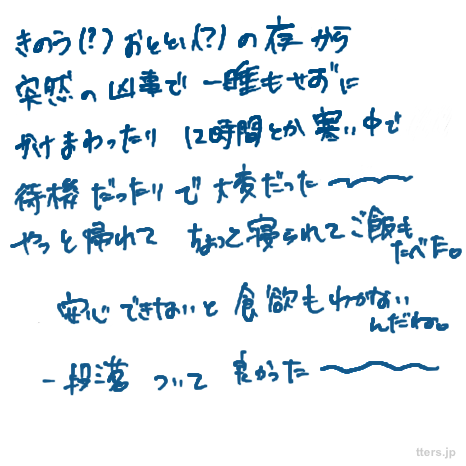 きのう(?)おととい(?)の夜から
突然の凶事で 一睡もせずに
かけまわったり 12時間とか寒い中で
待機だったりで大変だった〜〜
やっと帰れて ちょっと寝られてご飯も
たべた。
安心できないと食欲もわかない
んだね。
一段落ついて 良かった〜〜
tters.jp